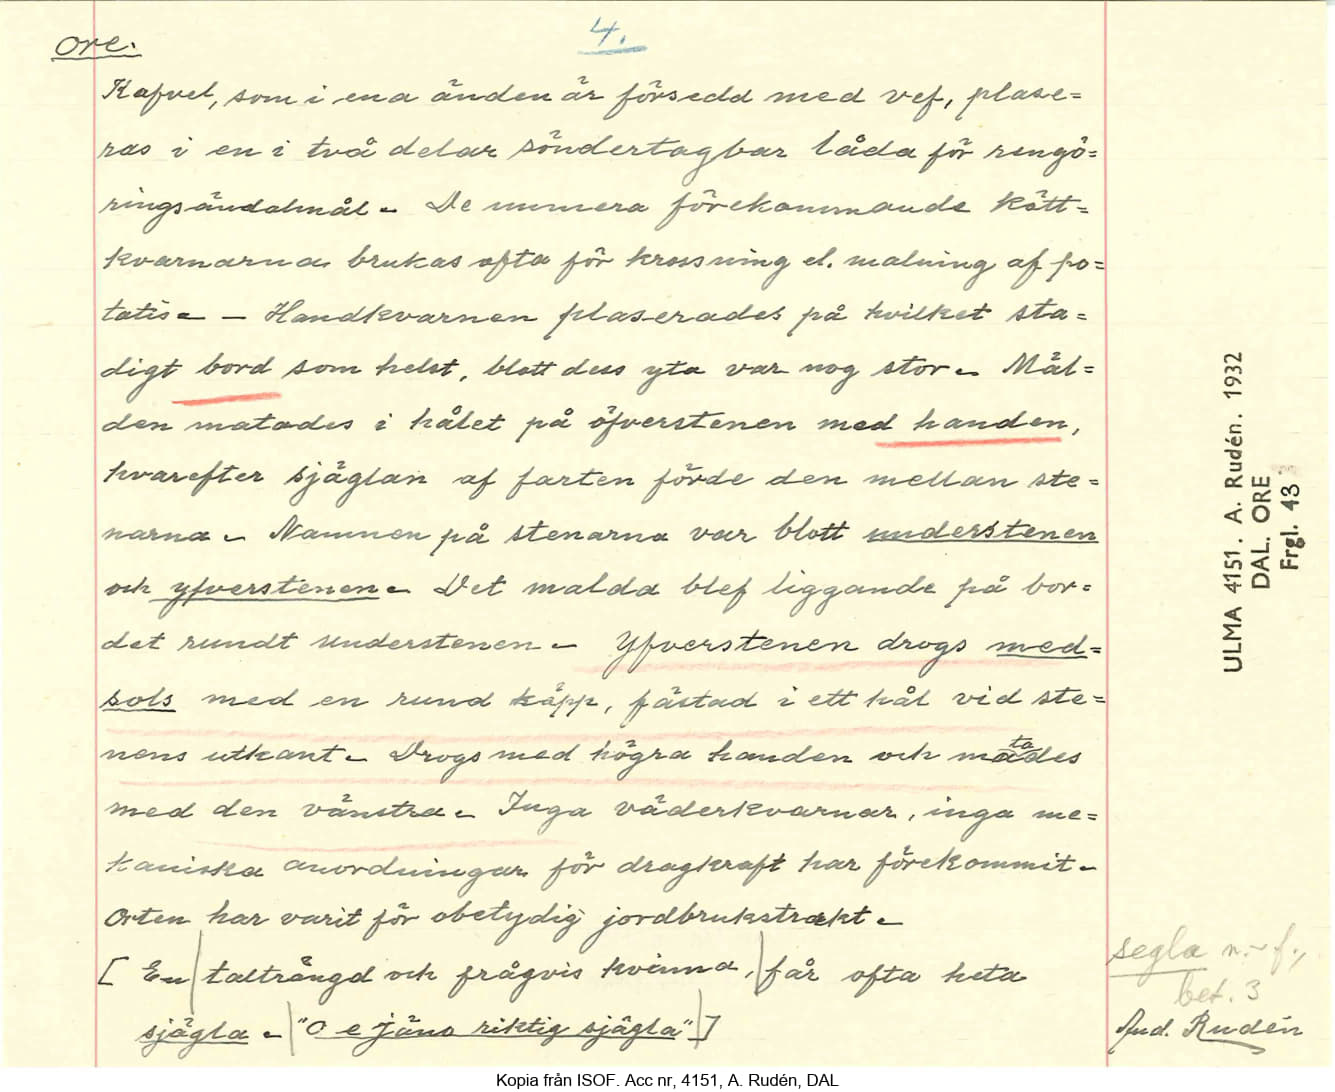 Ore.
4.
Kafvel, som i ena änden är försedd med vef, plase=
ras i en i två delar söndertagbar låda för rengö=
ringsändalmål. De numera förekommande kött=
kvarnarna brukas ofta för krossning el. malning af po=
tatis. – Handkvarnen plaserades på hvilket sta=
digt bord som helst, blott dess yta var nog stor. Mäl=
den matades i hålet på öfverstenen med handen,
hvarefter sjäglan af farten förde den mellan ste=
narna. Namnen på stenarna var blott understenen
och yfverstenen. Det malda blef liggande på bor=
det rundt understenen. Yfverstenen drogs med=
sols med en rund käpp, fästad i ett hål vid ste=
nens utkant. Drogs med högra handen och matades
med den vänstra. Inga väderkvarnar, inga me=
kaniska anordningar för dragkraft har förekommit.
Orten har varit för obetydig jordbrukstrakt.
[ En taltrångd och frågvis kvinna, får ofta heta
sjägla. "O e jäna riktig sjägla" ]
segla n.~f.,
bet. 3
And. Rudén
ULMA 4151. A. Rudén. 1932
DAL. ORE
Frgl. 43
Kopia från ISOF. Acc nr, 4151, A. Rudén, DAL